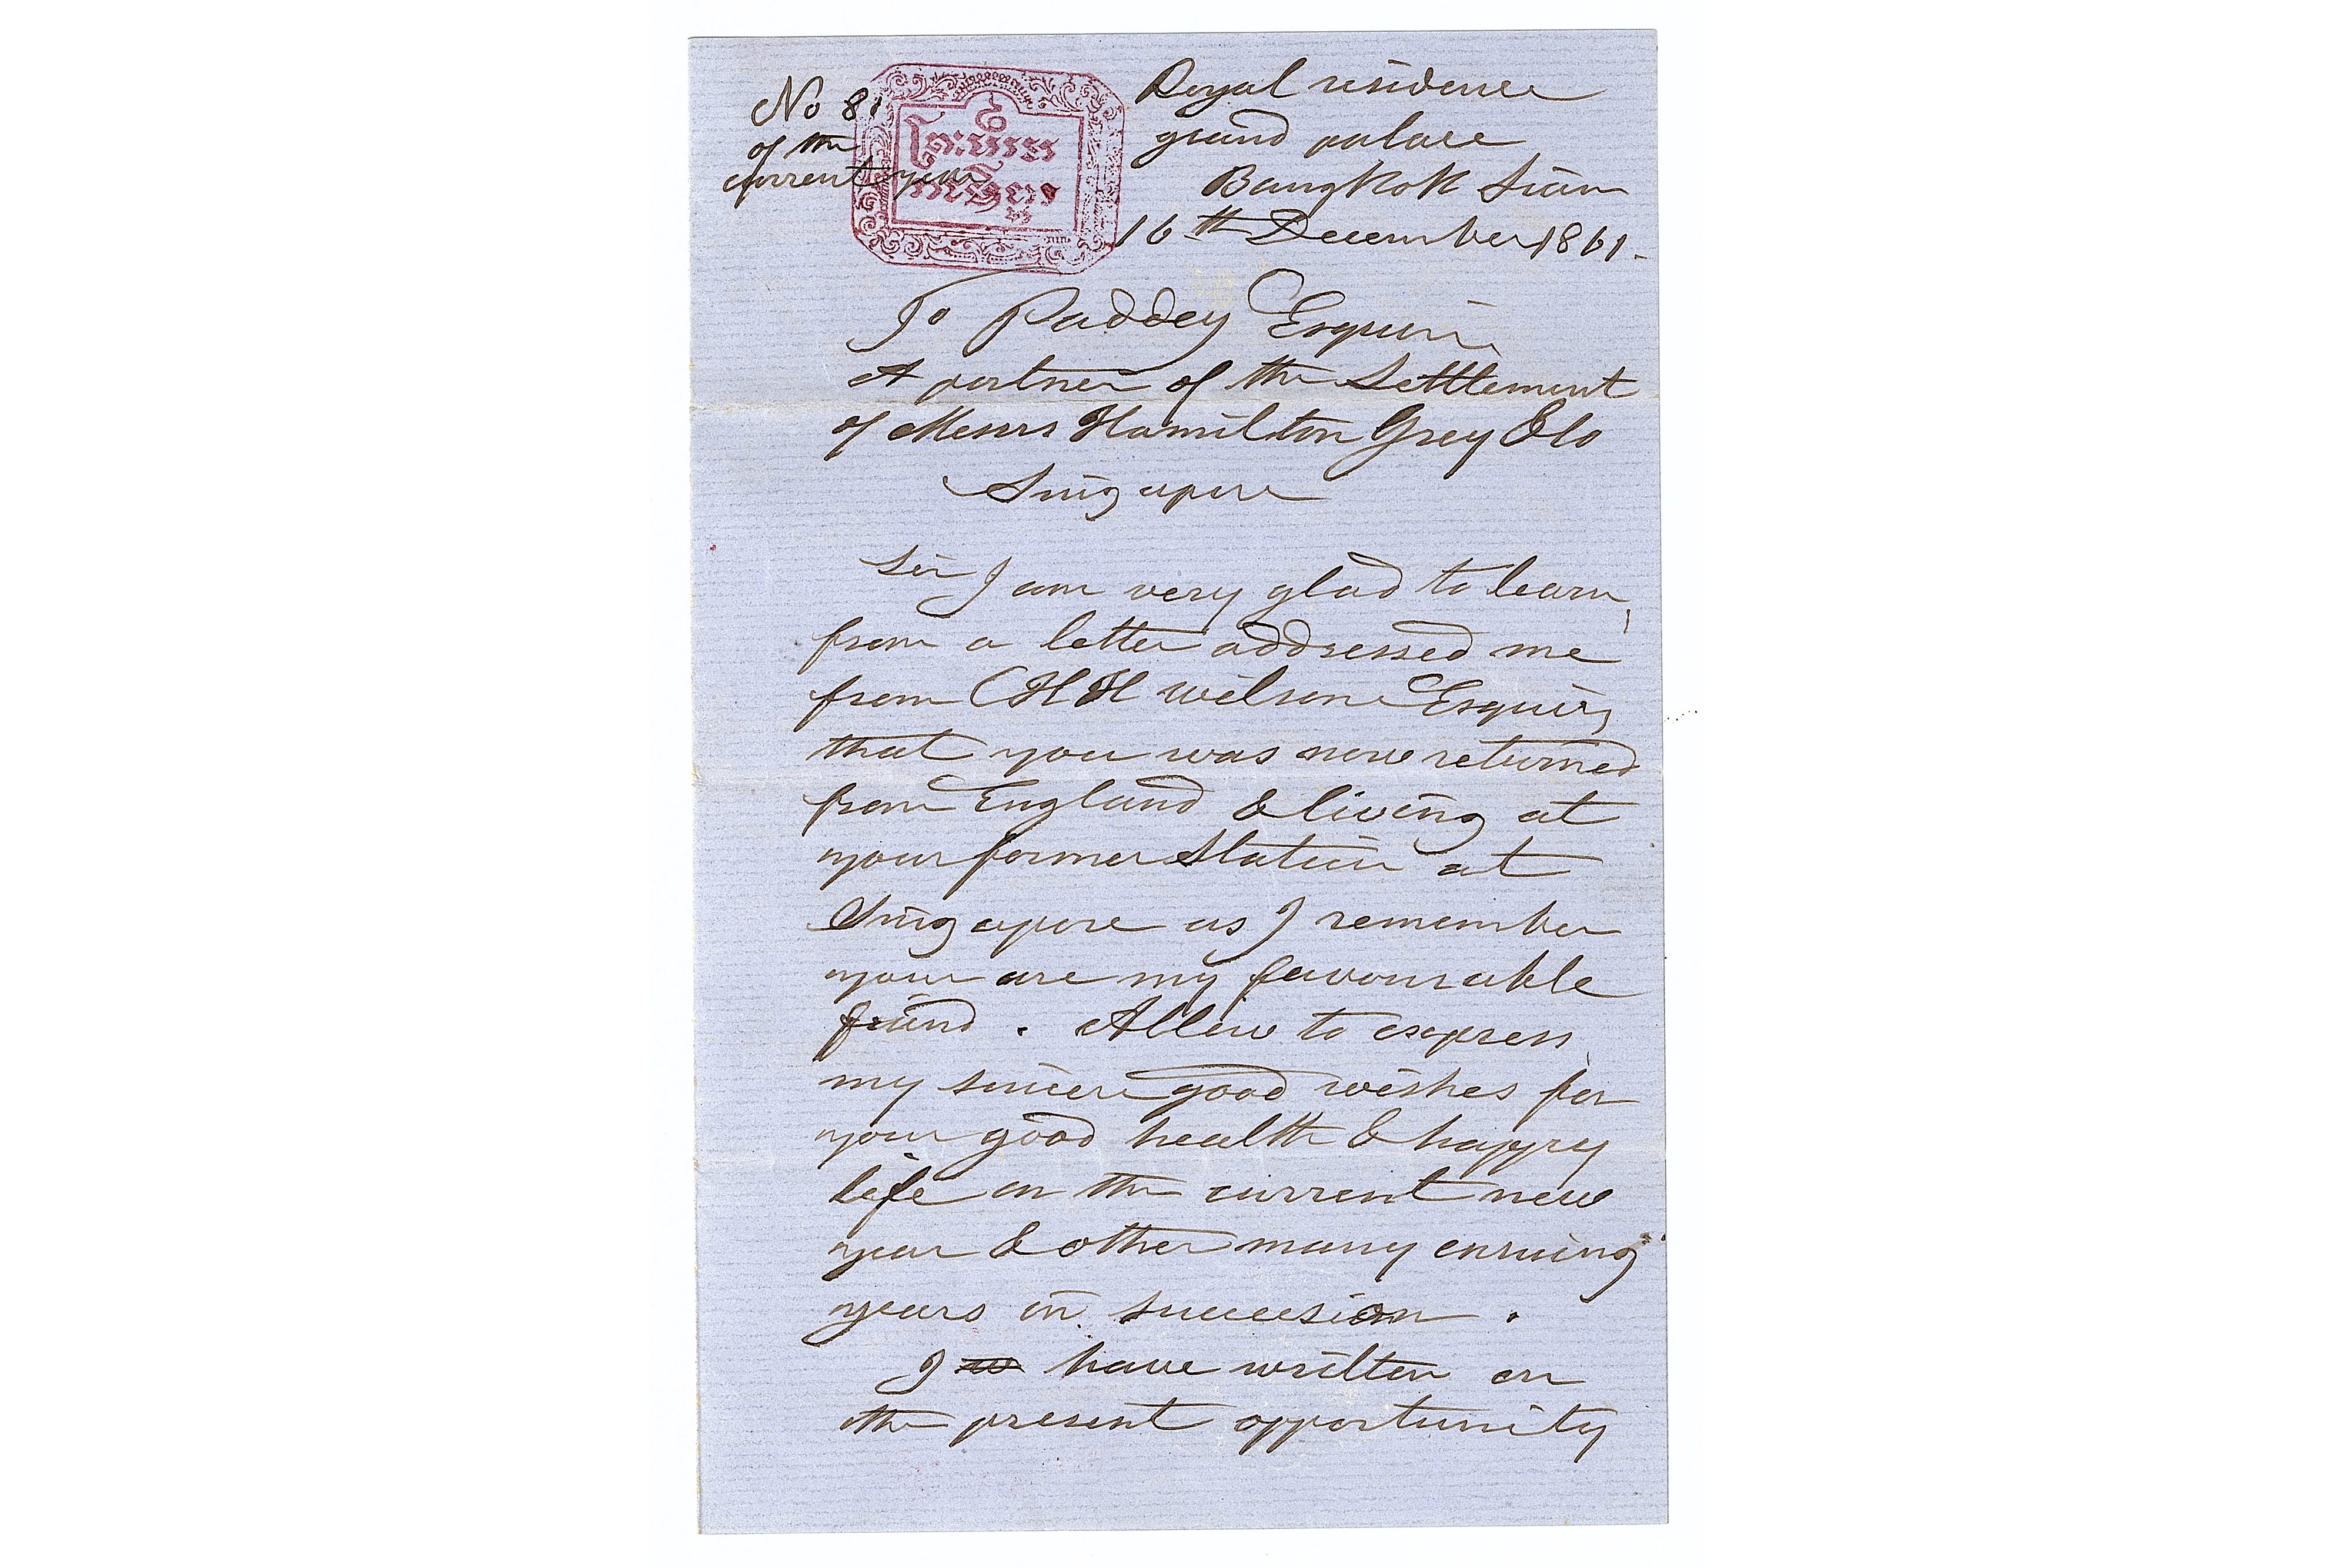 No 8
of the
current year
Royal residence
grand palace
Bangkok Siam
16th December 1861.
To Paddey Esquire
A partner of the Settlement
of Messrs Hamilton Grey & Co
Singapore
Sir I am very glad to learn
from a letter addressed me
from H H wilson Esquire
that you was now returned
from England & living at
your former Station at
Singapore as I remember
your are my favourable
friend . Allow to express
my sincere good wishes for
your good health & happy
life on the current new
year & other many ensuing
years in succesion .
I have written on
the present opportunity